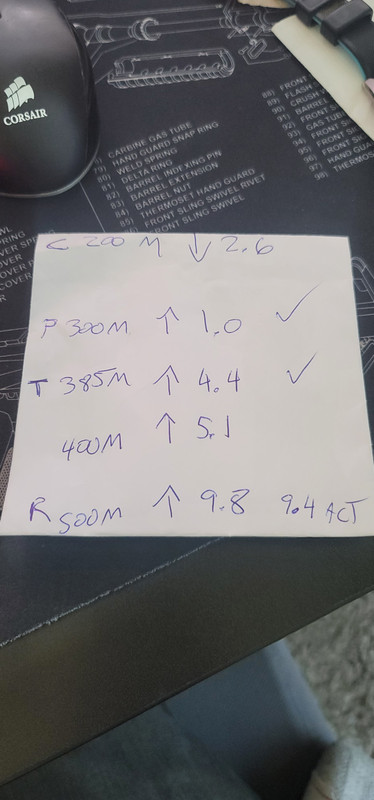 CORSAIR
79) CARBINE GAS TUBE
80) HAND GUARD SNAP RING
81) WELD SPRING
82) DELTA RING
83) BARREL INDEXING PIN
84) BARREL EXTENSION
BARREL NUT
THERMOSET HAND GUARD
FRONT SLING SWIVEL RIVET
FRONT SLING SWIVEL
88) FRONT
89) FLASH
90) CRUSH
91) BARREL
92) FRONT
93) GAS TUB
94) FRONT S
95) FRONT SI
96) FRONT SI
97) HAND GUA
98) THERMOS
C 200 M ↓ 2.6
P 300M ↑ 1.0 ✓
T 385M ↑ 4.4 ✓
400M ↑ 5.1
R 500M ↑ 9.8 9.4 ACT